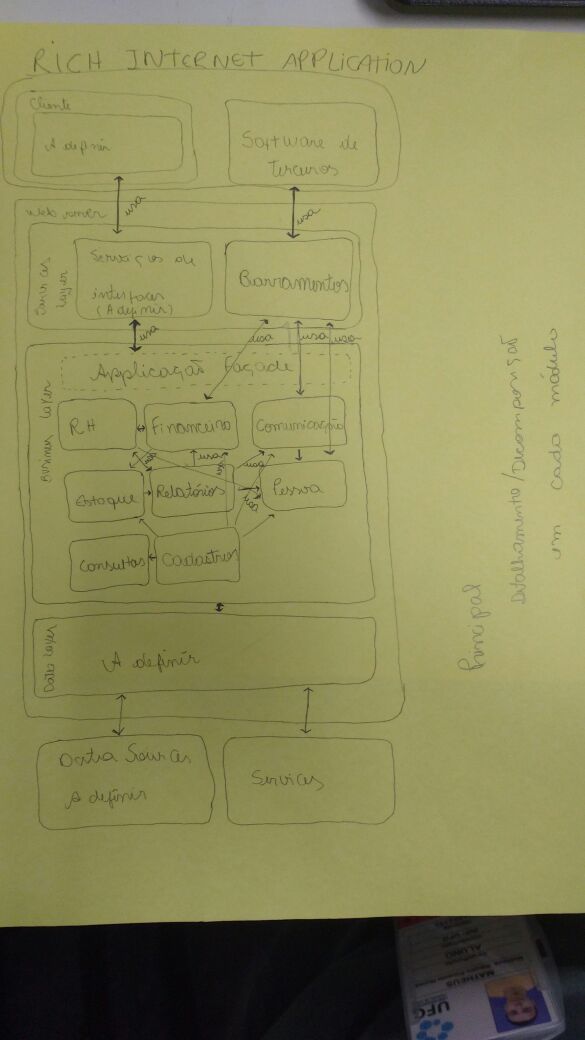 RICH INTERNET APPLICATION
Cliente
A definir
Software de
terceiros
usa
usa
Web server
Services
Layer
Serviços de
interfaces
(A definir)
Barramentos
usa
usa
usa
usa
Business Layer
Applicação façade
RH
Financeiro
Comunicação
usa
usa
usa
usa
Estoque
Relatórios
Pessoa
Consultas
Cadastros
Data Layer
A definir
Data Sources
A definir
Services
Principal
Detalhamento/Decomposição
em cada módulo
UFC
MATHEUS
ALUNO